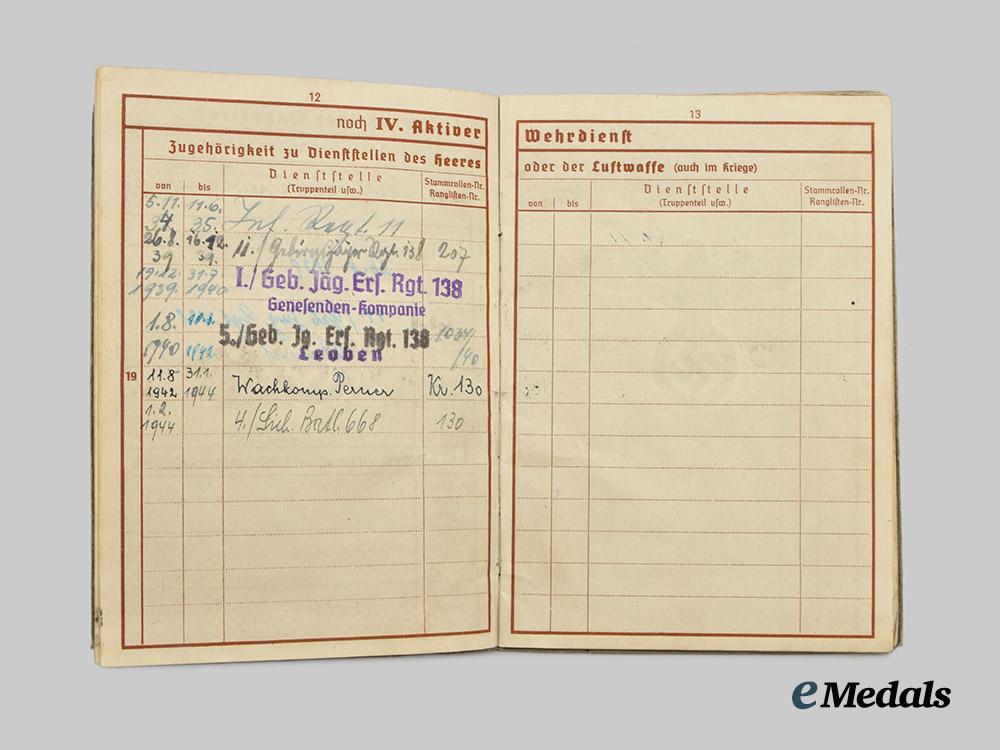 12
noch IV. Aktiver
Zugehörigkeit zu Dienststellen des Heeres
von bis Dienststelle (Truppenteil usw.) Stammrollen-Nr. Ranglisten-Nr.
5.11. 11.6.
34 35. Inf. Regt. 11
26.8. 16.12.
39 39. 11./Gebirgsjäger Rgt. 138 207
19.12. 31.7.
1939 1940
I./Geb. Jäg. Ers. Rgt. 138
Genesenden-Kompanie
1.8.
1940 1942
5./Geb. Jg. Ers. Rgt. 138
Leoben
/40
19
11.8 31.1.
1942 1944 Wachkomp. Perner Kr. 130
1.2.
1944 4./Sich. Batl. 668 130
13
Wehrdienst
oder der Luftwaffe (auch im Kriege)
von bis Dienststelle (Truppenteil usw.) Stammrollen-Nr. Ranglisten-Nr.
eMedals